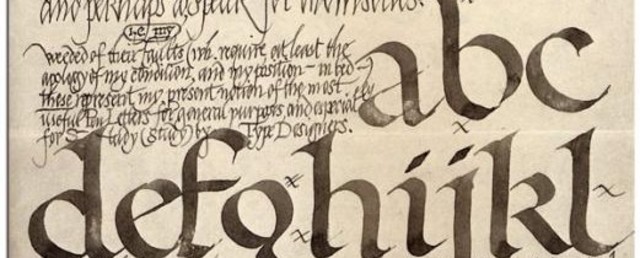 and perhaps a speak for themselves.
i.e. my
weeded of their faults (wh. require at least the
apology of my condition, and my position — in bed —)
these represent my present notion of the most
useful Pen Letters for general purposes, and especially
for Study (Study) by Type Designers.
abc
defghijkl